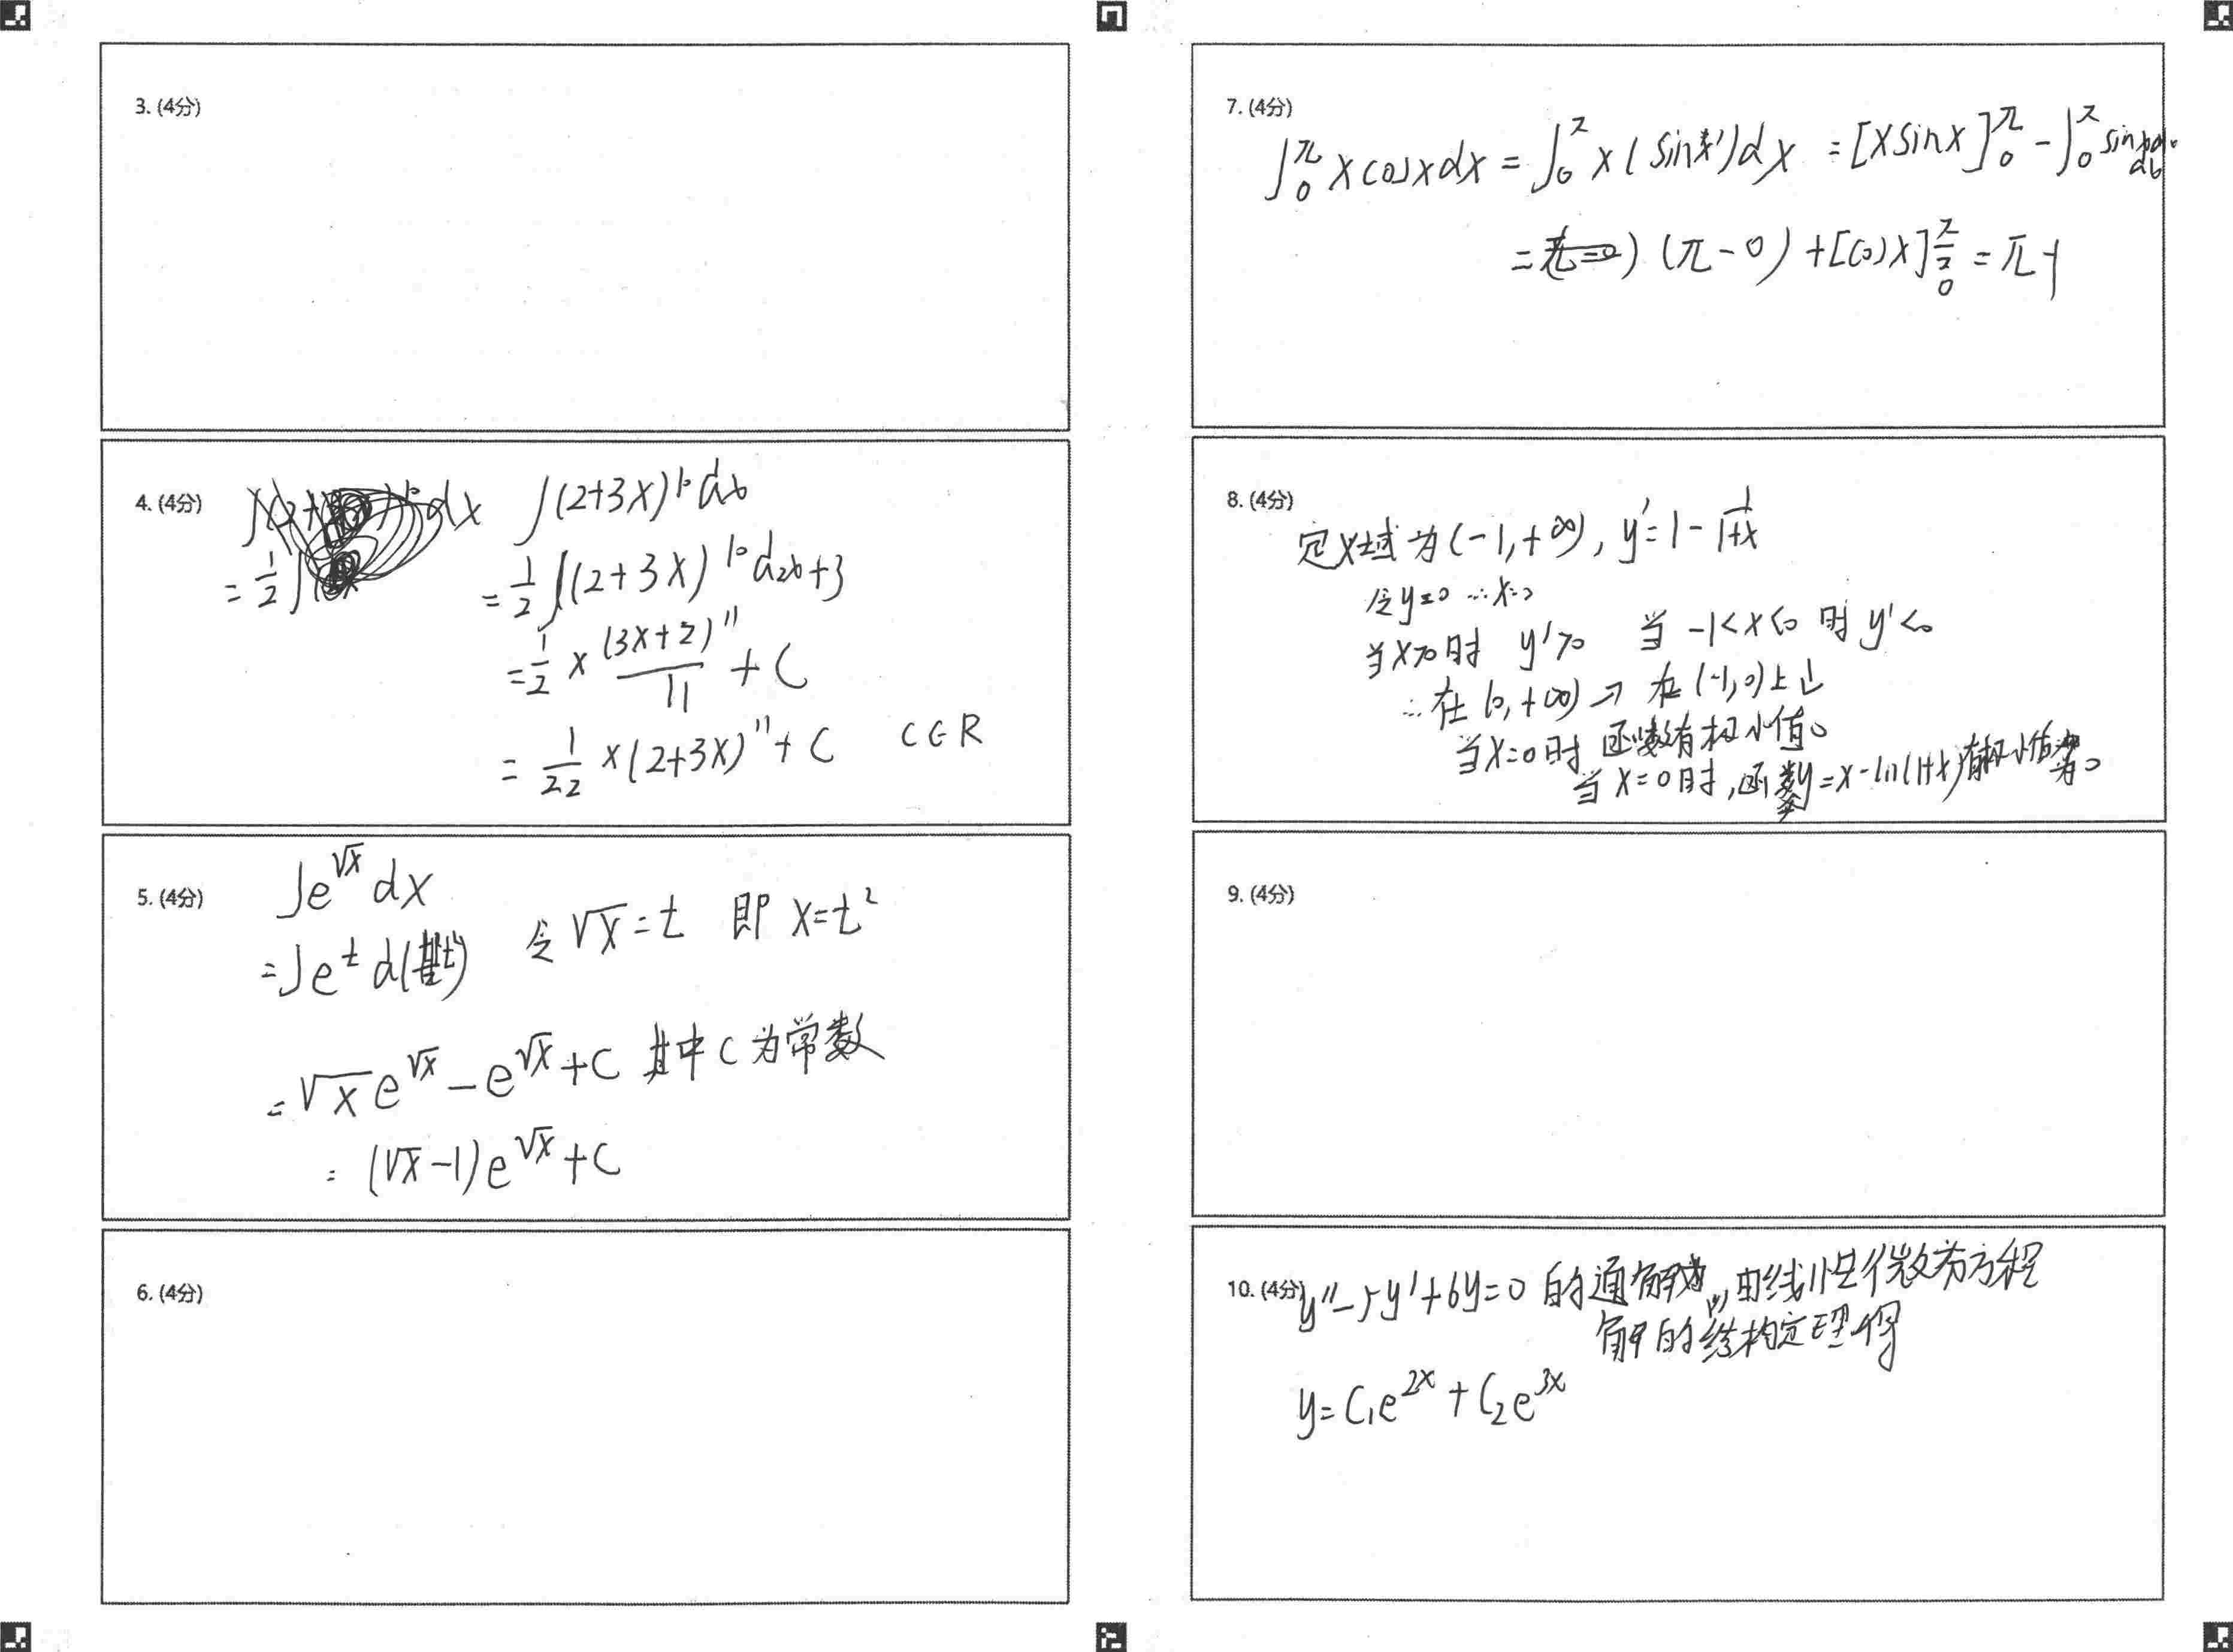 3. (4分)
4. (4分)
∫(2+3x)¹⁰dx
=1/2∫(2+3x)¹⁰d2x+3
=1/2×(3x+2)¹¹/11+C
=1/22×(2+3x)¹¹+C C∈R
5. (4分)
∫e^√x dx
=∫e^t d( 令√x=t 即 x=t²
=√x e^√x-e^√x+C 其中C为常数
=(√x-1)e^√x+C
6. (4分)
7. (4分)
∫₀^π x cosx dx=∫₀^π x(sinx')dx=[xsinx]₀^π-∫₀^π sin
=(π-0)+[cosx]₀^π/2=π-1
8. (4分)
定义域为(-1,+∞),y'=1-1/(1+x)
令y=0 ∴x=0
当x>0时 y'>0 当-1<x<0时y'<0
∴在(0,+∞)↗在(-1,0)上↓
当x=0时函数有极小值。
当x=0时,函数y=x-ln(1+x)有极小值为0
9. (4分)
10. (4分)
y''-5y'+6y=0的通解为,由线性微分方程
解的结构定理得
y=C₁e^2x+C₂e^3x